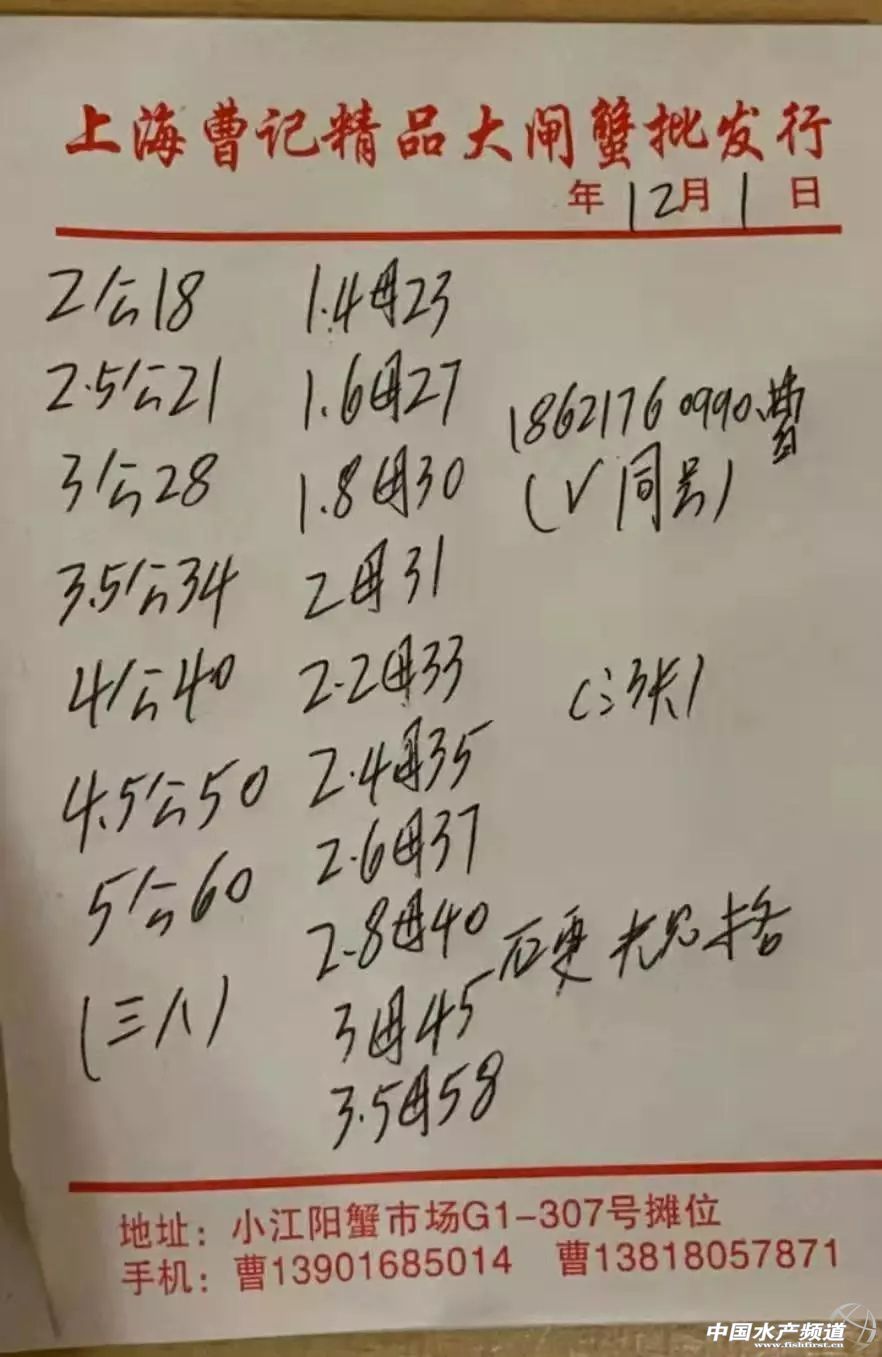 上海曹记精品大闸蟹批发行
年12月1日
2公18 1.4母23
2.5公21 1.6母27
18621760990曹
3公28 1.8母30
(V同号)
3.5公34 2母31
4公40 2.2母33
4.5公50 2.4母35
5公60 2.6母37
2.8母40
硬 规格
(三八) 3母45
3.5母58
地址：小江阳蟹市场G1-307号摊位
手机：曹13901685014 曹13818057871
中国水产频道
www.fishfirst.cn